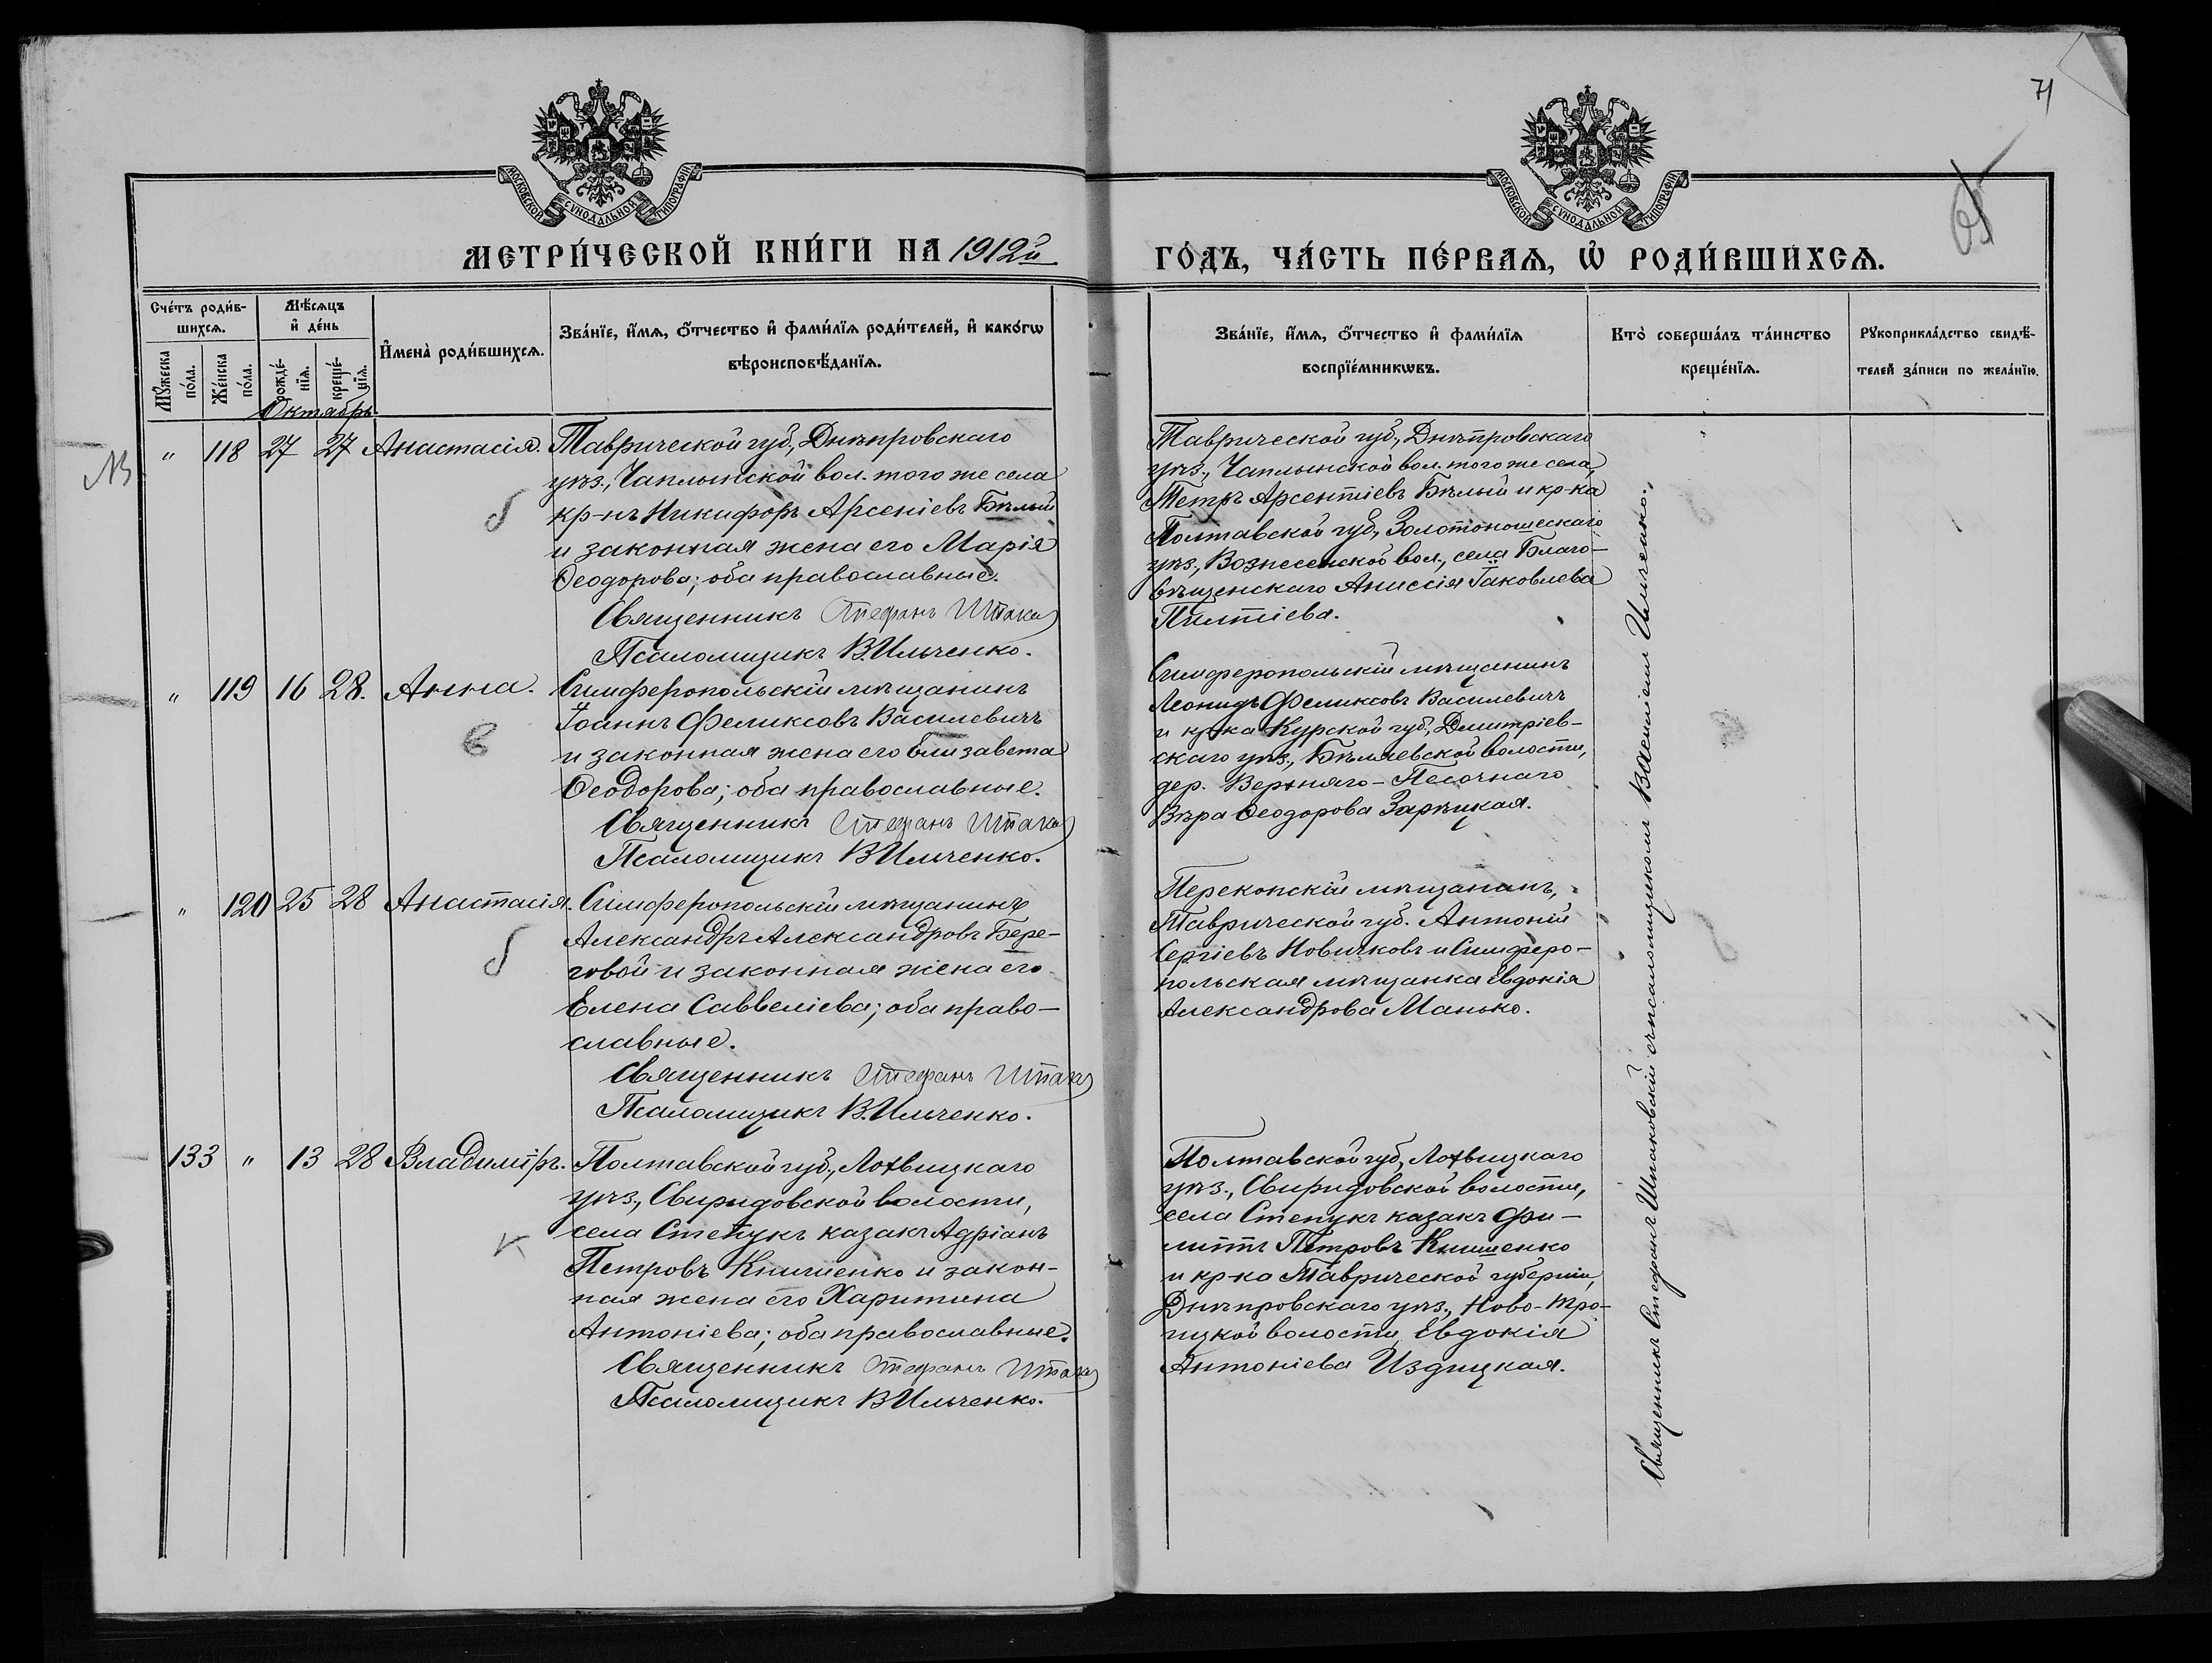 71
МОСКОВСКОЙ СѴНОДАЛЬНОЙ ТИПОГРАФІИ
МОСКОВСКОЙ СѴНОДАЛЬНОЙ ТИПОГРАФІИ
МЕТРИ́ЧЕСКОЙ КНИ́ГИ НА 1912й
ГО́ДЪ, ЧА́СТЬ ПЕ́РВАѦ, Ѡ҆ РОДИ́ВШИХСѦ.
Сче́тъ роди́в-
шихсѧ.
Мꙋ́жеска по́ла.
Же́нска по́ла.
Мѣ́сѧцъ
и҆ де́нь
рожде́-
нїѧ.
креще́-
нїѧ.
Октябрь.
И҆мена̀ роди́вшихсѧ.
Зва́нїе, и҆́мѧ, ѻ҆́тчество и҆ фами́лїѧ роди́телей, и҆ како́гѡ
вѣроисповѣ́данїѧ.
Зва́нїе, и҆́мѧ, ѻ҆́тчество и҆ фами́лїѧ
воспрїе́мникѡвъ.
Кто̀ соверша́лъ та́инство
креще́нїѧ.
Рꙋкоприкла́дство свидѣ́-
телей за́писи по жела́нїю.
" 118 27 27 Анастасія.
Таврической губ., Днѣпровскаго
уѣз., Чаплынской вол. того же села
кр-нъ Никифоръ Арсеніевъ Бѣлый
и законная жена его Марія
Ѳеодорова; оба православные.
Священникъ Стефанъ
Псаломщикъ В.Ильченко.
Таврической губ., Днѣпровскаго
уѣз., Чаплынской вол. того же села,
Петръ Арсентіевъ Бѣлый и кр-ка
Полтавской губ., Золотоношескаго
уѣз., Вознесенской вол., села Благо-
вѣщенскаго Анисія Іаковлева
Пилтіева.
" 119 16 28. Анна.
Симферопольскій мѣщанинъ
Іоаннъ Феликсовъ Василевичъ
и законная жена его Елизавета
Ѳеодорова; оба православные.
Священникъ Стефанъ
Псаломщикъ В Ильченко.
Симферопольскій мѣщанинъ
Леонидъ Феликсовъ Василевичъ
и кр-ка Курской губ., Дмитріев-
скаго уѣз., Бѣляевской волости,
дер. Верхняго-Песочнаго
Вѣра Ѳеодорова Зарѣцкая.
" 120 25 28 Анастасія.
Симферопольскій мѣщанинъ
Александръ Александровъ Бере-
говой и законная жена его
Елена Саввеліева; оба право-
славные.
Священникъ Стефанъ
Псаломщикъ В.Ильченко.
Перекопскій мѣщанинъ,
Таврической губ. Антоній
Сергіевъ Новичковъ и Симферо-
польская мѣщанка Евдокія
Александрова Манько.
133 " 13 28 Владиміръ.
Полтавской губ., Лохвицкаго
уѣз., Свиридовской волости,
села Степукъ казакъ Адріанъ
Петровъ Книшенко и закон-
ная жена его Харитина
Антоніева; оба православные.
Священникъ Стефанъ
Псаломщикъ В Ильченко.
Полтавской губ., Лохвицкаго
уѣз., Свиридовской волости,
села Степукъ казакъ Фи-
липпъ Петровъ Книшенко
и кр-ка Таврической губерніи,
Днѣпровскаго уѣз., Ново-Тро-
ицкой волости, Евдокія
Антоніева Издицкая.
Священникъ Стефанъ съ псаломщикомъ Василіемъ Ильченко.